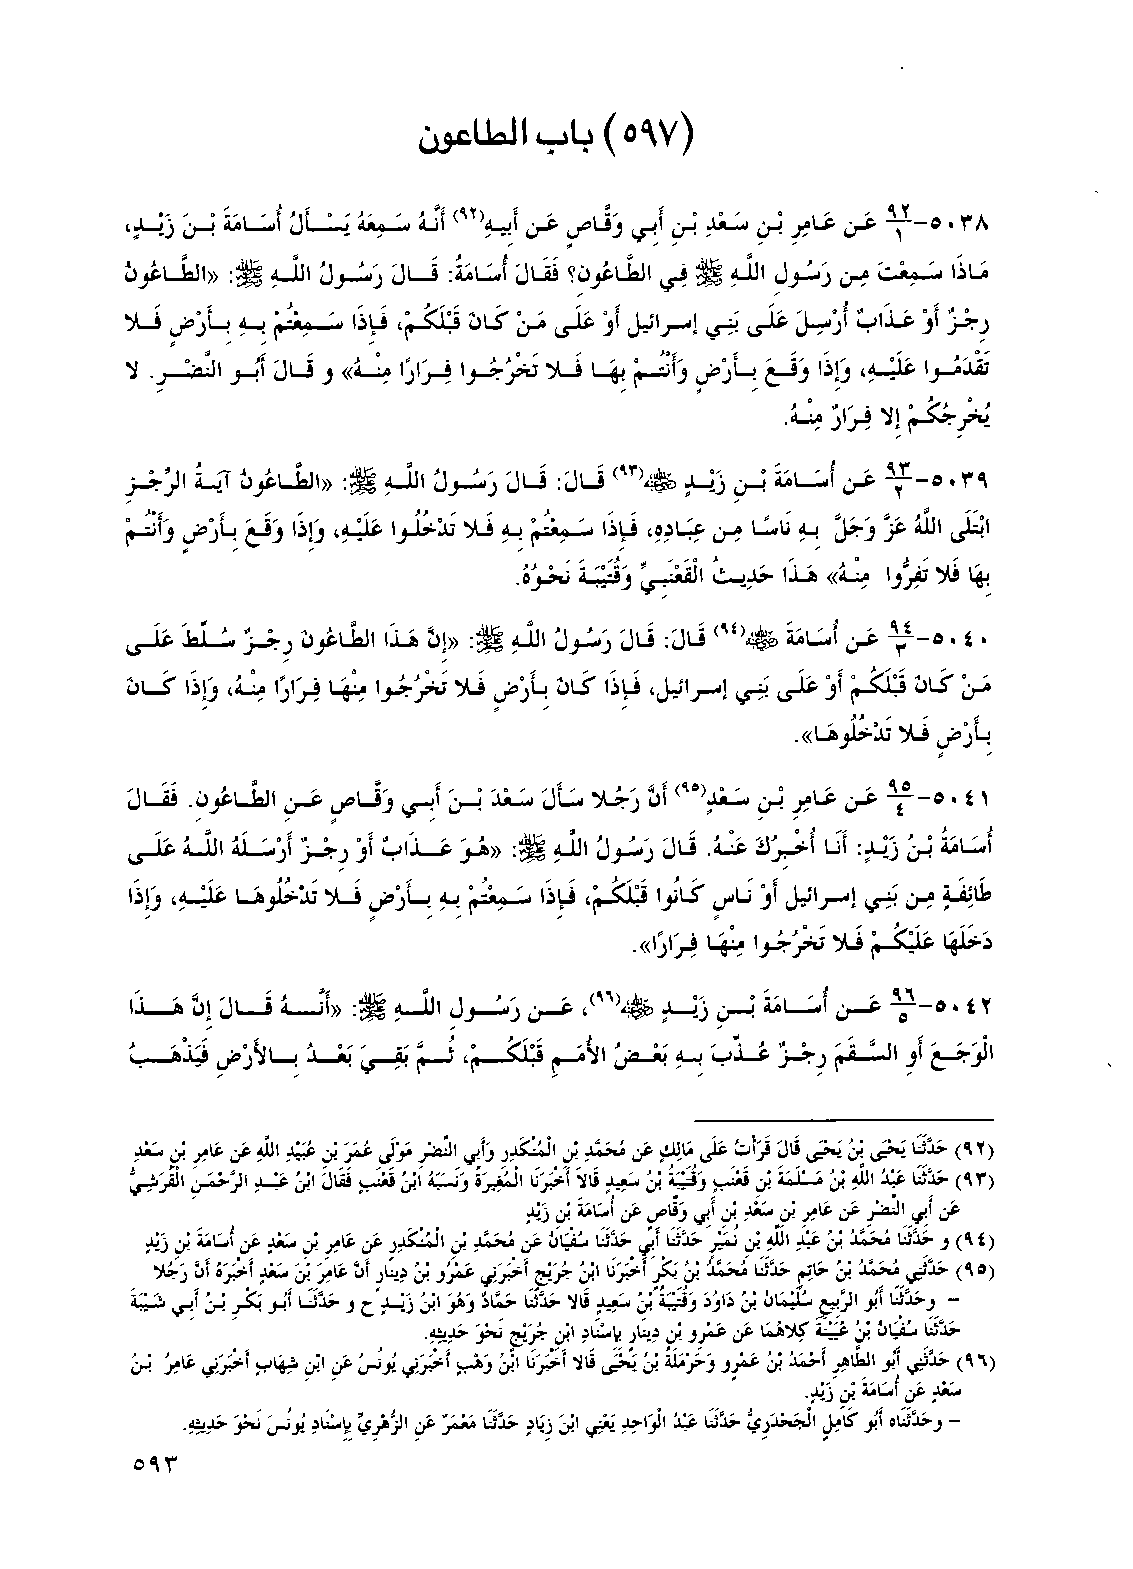 (٥٩٧) باب الطاعون
٥٠٣٨-٩٢/١ عَن عَامِرِ بْنِ سَعْدِ بْنِ أَبِي وَقَّاصٍ عَن أَبِيهِ(٩٢) أَنَّهُ سَمِعَهُ يَسْأَلُ أُسَامَةَ بْنَ زَيْدٍ،
مَاذَا سَمِعْتَ مِن رَسُولِ اللَّهِ ﷺ فِي الطَّاعُونِ؟ فَقَالَ أُسَامَةُ: قَالَ رَسُولُ اللَّهِ ﷺ: «الطَّاعُونُ
رِجْزٌ أَوْ عَذَابٌ أُرْسِلَ عَلَى بَنِي إِسرائيل أَوْ عَلَى مَنْ كَانَ قَبْلَكُمْ، فَإِذَا سَمِعْتُمْ بِهِ بِأَرْضٍ فَلا
تَقْدَمُوا عَلَيْهِ، وَإِذَا وَقَعَ بِأَرْضٍ وَأَنْتُمْ بِهَا فَلا تَخْرُجُوا فِرَارًا مِنْهُ» و قَالَ أَبُو النَّضْرِ. لا
يُخْرِجُكُمْ إِلا فِرَارٌ مِنْهُ.
٥٠٣٩-٩٣/٢ عَن أُسَامَةَ بْنِ زَيْدٍ ﵁(٩٣) قَالَ: قَالَ رَسُولُ اللَّهِ ﷺ: «الطَّاعُونُ آيَةُ الرِّجْزِ
ابْتَلَى اللَّهُ عَزَّ وَجَلَّ بِهِ نَاسًا مِن عِبَادِهِ، فَإِذَا سَمِعْتُمْ بِهِ فَلا تَدْخُلُوا عَلَيْهِ، وَإِذَا وَقَعَ بِأَرْضٍ وَأَنْتُمْ
بِهَا فَلا تَفِرُّوا مِنْهُ» هَذَا حَدِيثُ الْقَعْنَبِيِّ وَقُتَيْبَةَ نَحْوُهُ.
٥٠٤٠-٩٤/٣ عَن أُسَامَةَ ﵁(٩٤) قَالَ: قَالَ رَسُولُ اللَّهِ ﷺ: «إِنَّ هَذَا الطَّاعُونَ رِجْزٌ سُلِّطَ عَلَى
مَنْ كَانَ قَبْلَكُمْ أَوْ عَلَى بَنِي إِسرائيل، فَإِذَا كَانَ بِأَرْضٍ فَلا تَخْرُجُوا مِنْهَا فِرَارًا مِنْهُ، وَإِذَا كَانَ
بِأَرْضٍ فَلا تَدْخُلُوهَا».
٥٠٤١-٩٥/٤ عَن عَامِرِ بْنِ سَعْدٍ(٩٥) أَنَّ رَجُلا سَأَلَ سَعْدَ بْنَ أَبِي وَقَّاصٍ عَنِ الطَّاعُونِ. فَقَالَ
أُسَامَةُ بْنُ زَيْدٍ: أَنَا أُخْبِرُكَ عَنْهُ. قَالَ رَسُولُ اللَّهِ ﷺ: «هُوَ عَذَابٌ أَوْ رِجْزٌ أَرْسَلَهُ اللَّهُ عَلَى
طَائِفَةٍ مِن بَنِي إِسرائيل أَوْ نَاسٍ كَانُوا قَبْلَكُمْ، فَإِذَا سَمِعْتُمْ بِهِ بِأَرْضٍ فَلا تَدْخُلُوهَا عَلَيْهِ، وَإِذَا
دَخَلَهَا عَلَيْكُمْ فَلا تَخْرُجُوا مِنْهَا فِرَارًا».
٥٠٤٢-٩٦/٥ عَن أُسَامَةَ بْنِ زَيْدٍ ﵁(٩٦)، عَن رَسُولِ اللَّهِ ﷺ: «أَنَّهُ قَالَ إِنَّ هَذَا
الْوَجَعَ أَوِ السَّقَمَ رِجْزٌ عُذِّبَ بِهِ بَعْضُ الأُمَمِ قَبْلَكُمْ، ثُمَّ بَقِيَ بَعْدُ بِالأَرْضِ فَيَذْهَبُ
(٩٢) حَدَّثَنَا يَحْيَى بْنُ يَحْيَى قَالَ قَرَأْتُ عَلَى مَالِكٍ عَن مُحَمَّدِ بْنِ الْمُنْكَدِرِ وَأَبِي النَّضْرِ مَوْلَى عُمَرَ بْنِ عُبَيْدِ اللَّهِ عَن عَامِرِ بْنِ سَعْدٍ
(٩٣) حَدَّثَنَا عَبْدُ اللَّهِ بْنُ مَسْلَمَةَ بْنِ قَعْنَبٍ وَقُتَيْبَةُ بْنُ سَعِيدٍ قَالاَ أَخْبَرَنَا الْمُغِيرَةُ وَنَسَبَهُ ابْنُ قَعْنَبٍ فَقَالَ ابْنُ عَبْدِ الرَّحْمَنِ الْقُرَشِيُّ
عَن أَبِي النَّضْرِ عَن عَامِرِ بْنِ سَعْدِ بْنِ أَبِي وَقَّاصٍ عَن أُسَامَةَ بْنِ زَيْدٍ
(٩٤) و حَدَّثَنَا مُحَمَّدُ بْنُ عَبْدِ اللَّهِ بْنِ نُمَيْرٍ حَدَّثَنَا أَبِي حَدَّثَنَا سُفْيَانُ عَن مُحَمَّدِ بْنِ الْمُنْكَدِرِ عَن عَامِرِ بْنِ سَعْدٍ عَن أُسَامَةَ بْنِ زَيْدٍ
(٩٥) حَدَّثَنِي مُحَمَّدُ بْنُ حَاتِمٍ حَدَّثَنَا مُحَمَّدُ بْنُ بَكْرٍ أَخْبَرَنَا ابْنُ جُرَيْجٍ أَخْبَرَنِي عَمْرُو بْنُ دِينَارٍ أَنَّ عَامِرَ بْنَ سَعْدٍ أَخْبَرَهُ أَنَّ رَجُلا
– وحَدَّثَنَا أَبُو الرَّبِيعِ سُلَيْمَانُ بْنُ دَاوُدَ وَقُتَيْبَةُ بْنُ سَعِيدٍ قَالا حَدَّثَنَا حَمَّادٌ وَهُوَ ابْنُ زَيْدٍ ح و حَدَّثَنَا أَبُو بَكْرِ بْنُ أَبِي شَيْبَةَ
حَدَّثَنَا سُفْيَانُ بْنُ عُيَيْنَةَ كِلاهُمَا عَن عَمْرِو بْنِ دِينَارٍ بِإِسْنَادِ ابْنِ جُرَيْجٍ نَحْوَ حَدِيثِهِ.
(٩٦) حَدَّثَنِي أَبُو الطَّاهِرِ أَحْمَدُ بْنُ عَمْرٍو وَحَرْمَلَةُ بْنُ يَحْيَى قَالا أَخْبَرَنَا ابْنُ وَهْبٍ أَخْبَرَنِي يُونُسُ عَن ابْنِ شِهَابٍ أَخْبَرَنِي عَامِرُ بْنُ
سَعْدٍ عَن أُسَامَةَ بْنِ زَيْدٍ.
– وحَدَّثَنَاه أَبُو كَامِلٍ الْجَحْدَرِيُّ حَدَّثَنَا عَبْدُ الْوَاحِدِ يَعْنِي ابْنَ زِيَادٍ حَدَّثَنَا مَعْمَرٌ عَن الزُّهْرِيِّ بِإِسْنَادِ يُونُسَ نَحْوَ حَدِيثِهِ.
٥٩٣